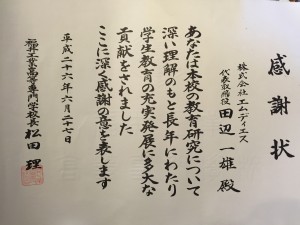 感謝状
株式会社エムディエス
代表取締役 田辺一雄殿
あなたは本校の教育研究について
深い理解のもと長年にわたり
学生教育の充実発展に多大な
貢献をされました
ここに深く感謝の意を表します
平成二十六年六月二十七日
福井工業高等専門学校長 松田理